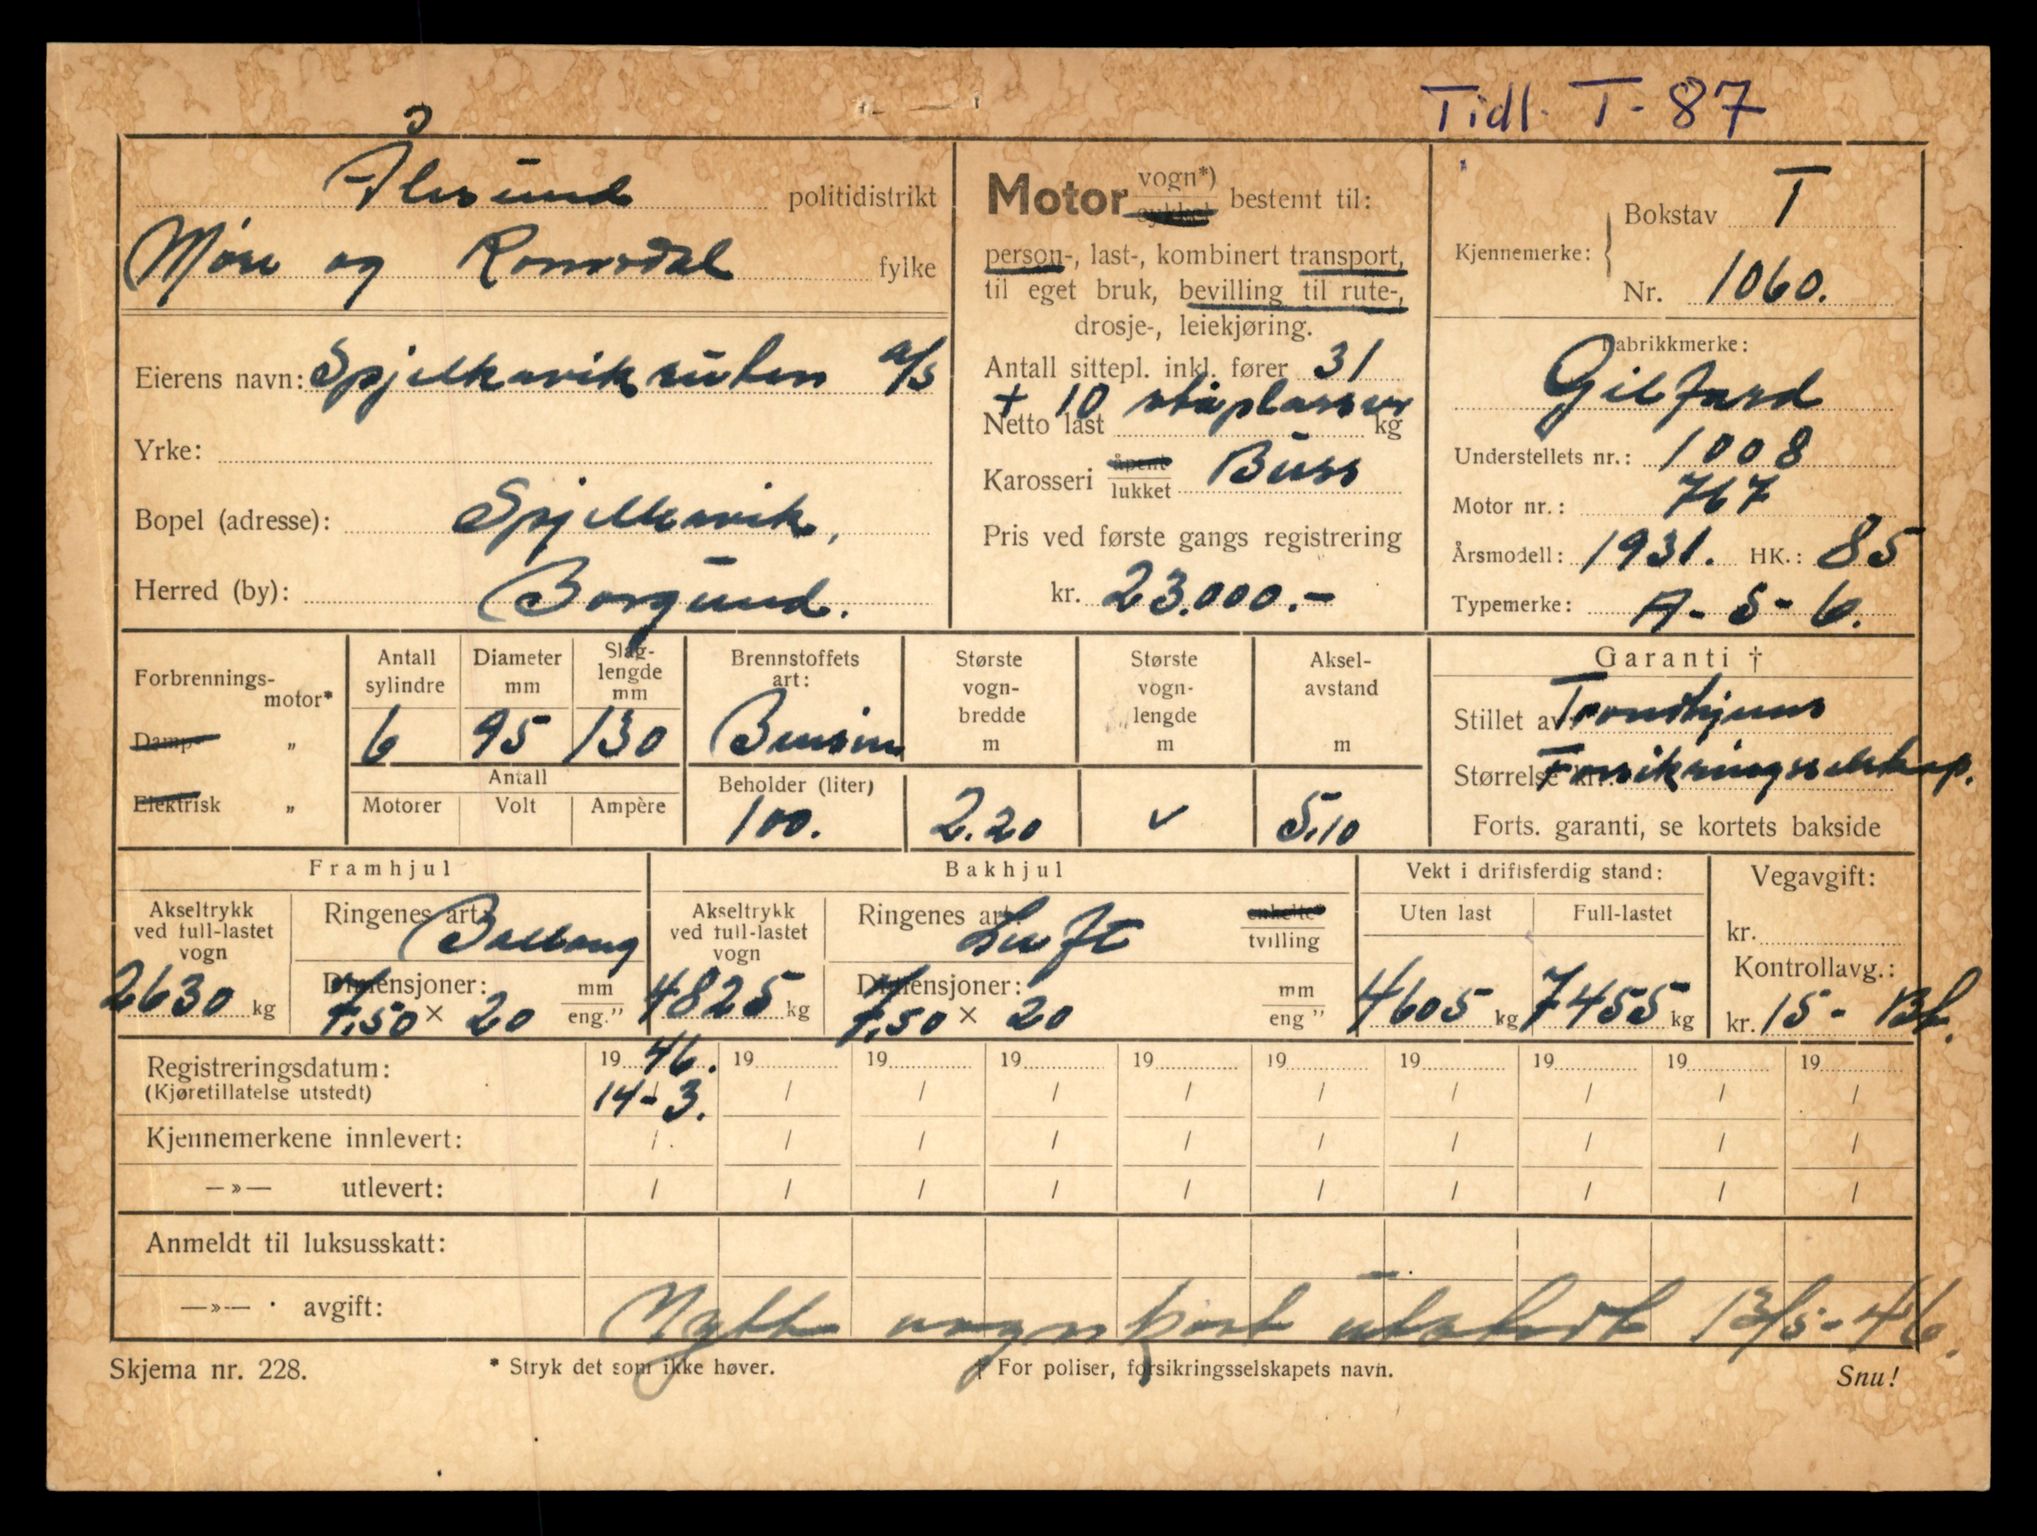 Tidl. T-87
Ålesund politidistrikt
Møre og Romsdal fylke
Eierens navn: Spjelkavikruten a/s
Yrke:
Bopel (adresse): Spjelkavik,
Herred (by): Borgund.
Motor vogn*) / sykkel bestemt til:
person-, last-, kombinert transport,
til eget bruk, bevilling til rute-,
drosje-, leiekjøring.
Antall sittepl. inkl. fører 31
+ 10 ståplasser
Netto last kg
Karosseri åpent / lukket Buss
Pris ved første gangs registrering
kr. 23.000.-
Kjennemerke: Bokstav T
Nr. 1060.
Fabrikkmerke:
Gilford
Understellets nr.: 1008
Motor nr.: 767
Årsmodell: 1931. HK.: 85
Typemerke: A-S-6.
Forbrennings-motor*
Damp- „
Elektrisk „
Antall sylindre 6
Diameter mm 95
Slag-lengde mm 130
Antall
Motorer Volt Ampère
Brennstoffets art: Bensin
Beholder (liter) 100.
Største vogn-bredde m 2.20
Største vogn-lengde m ✓
Aksel-avstand m 5.10
Garanti †
Stillet av Trondhjems
Størrelse kr. Forsikringsselskap.
Forts. garanti, se kortets bakside
Framhjul
Akseltrykk ved full-lastet vogn 2630 kg
Ringenes art: Ballong
Dimensjoner: 7.50 × 20 mm / eng."
Bakhjul
Akseltrykk ved full-lastet vogn 4825 kg
Ringenes art Luft enkelte* / tvilling
Dimensjoner: 7.50 × 20 mm / eng "
Vekt i driftsferdig stand:
Uten last Full-lastet
4605 kg 7455 kg
Vegavgift:
kr.
Kontrollavg.:
kr. 15-
Registreringsdatum: 19 46. 19 19 19 19 19 19 19 19 19
(Kjøretillatelse utstedt) 14-3. / / / / / / / / /
Kjennemerkene innlevert: / / / / / / / / / /
—»— utlevert: / / / / / / / / / /
Anmeldt til luksusskatt:
—»— avgift: Nytt vognkort utstedt 13/5-46.
Skjema nr. 228. * Stryk det som ikke høver. † For poliser, forsikringsselskapets navn. Snu!